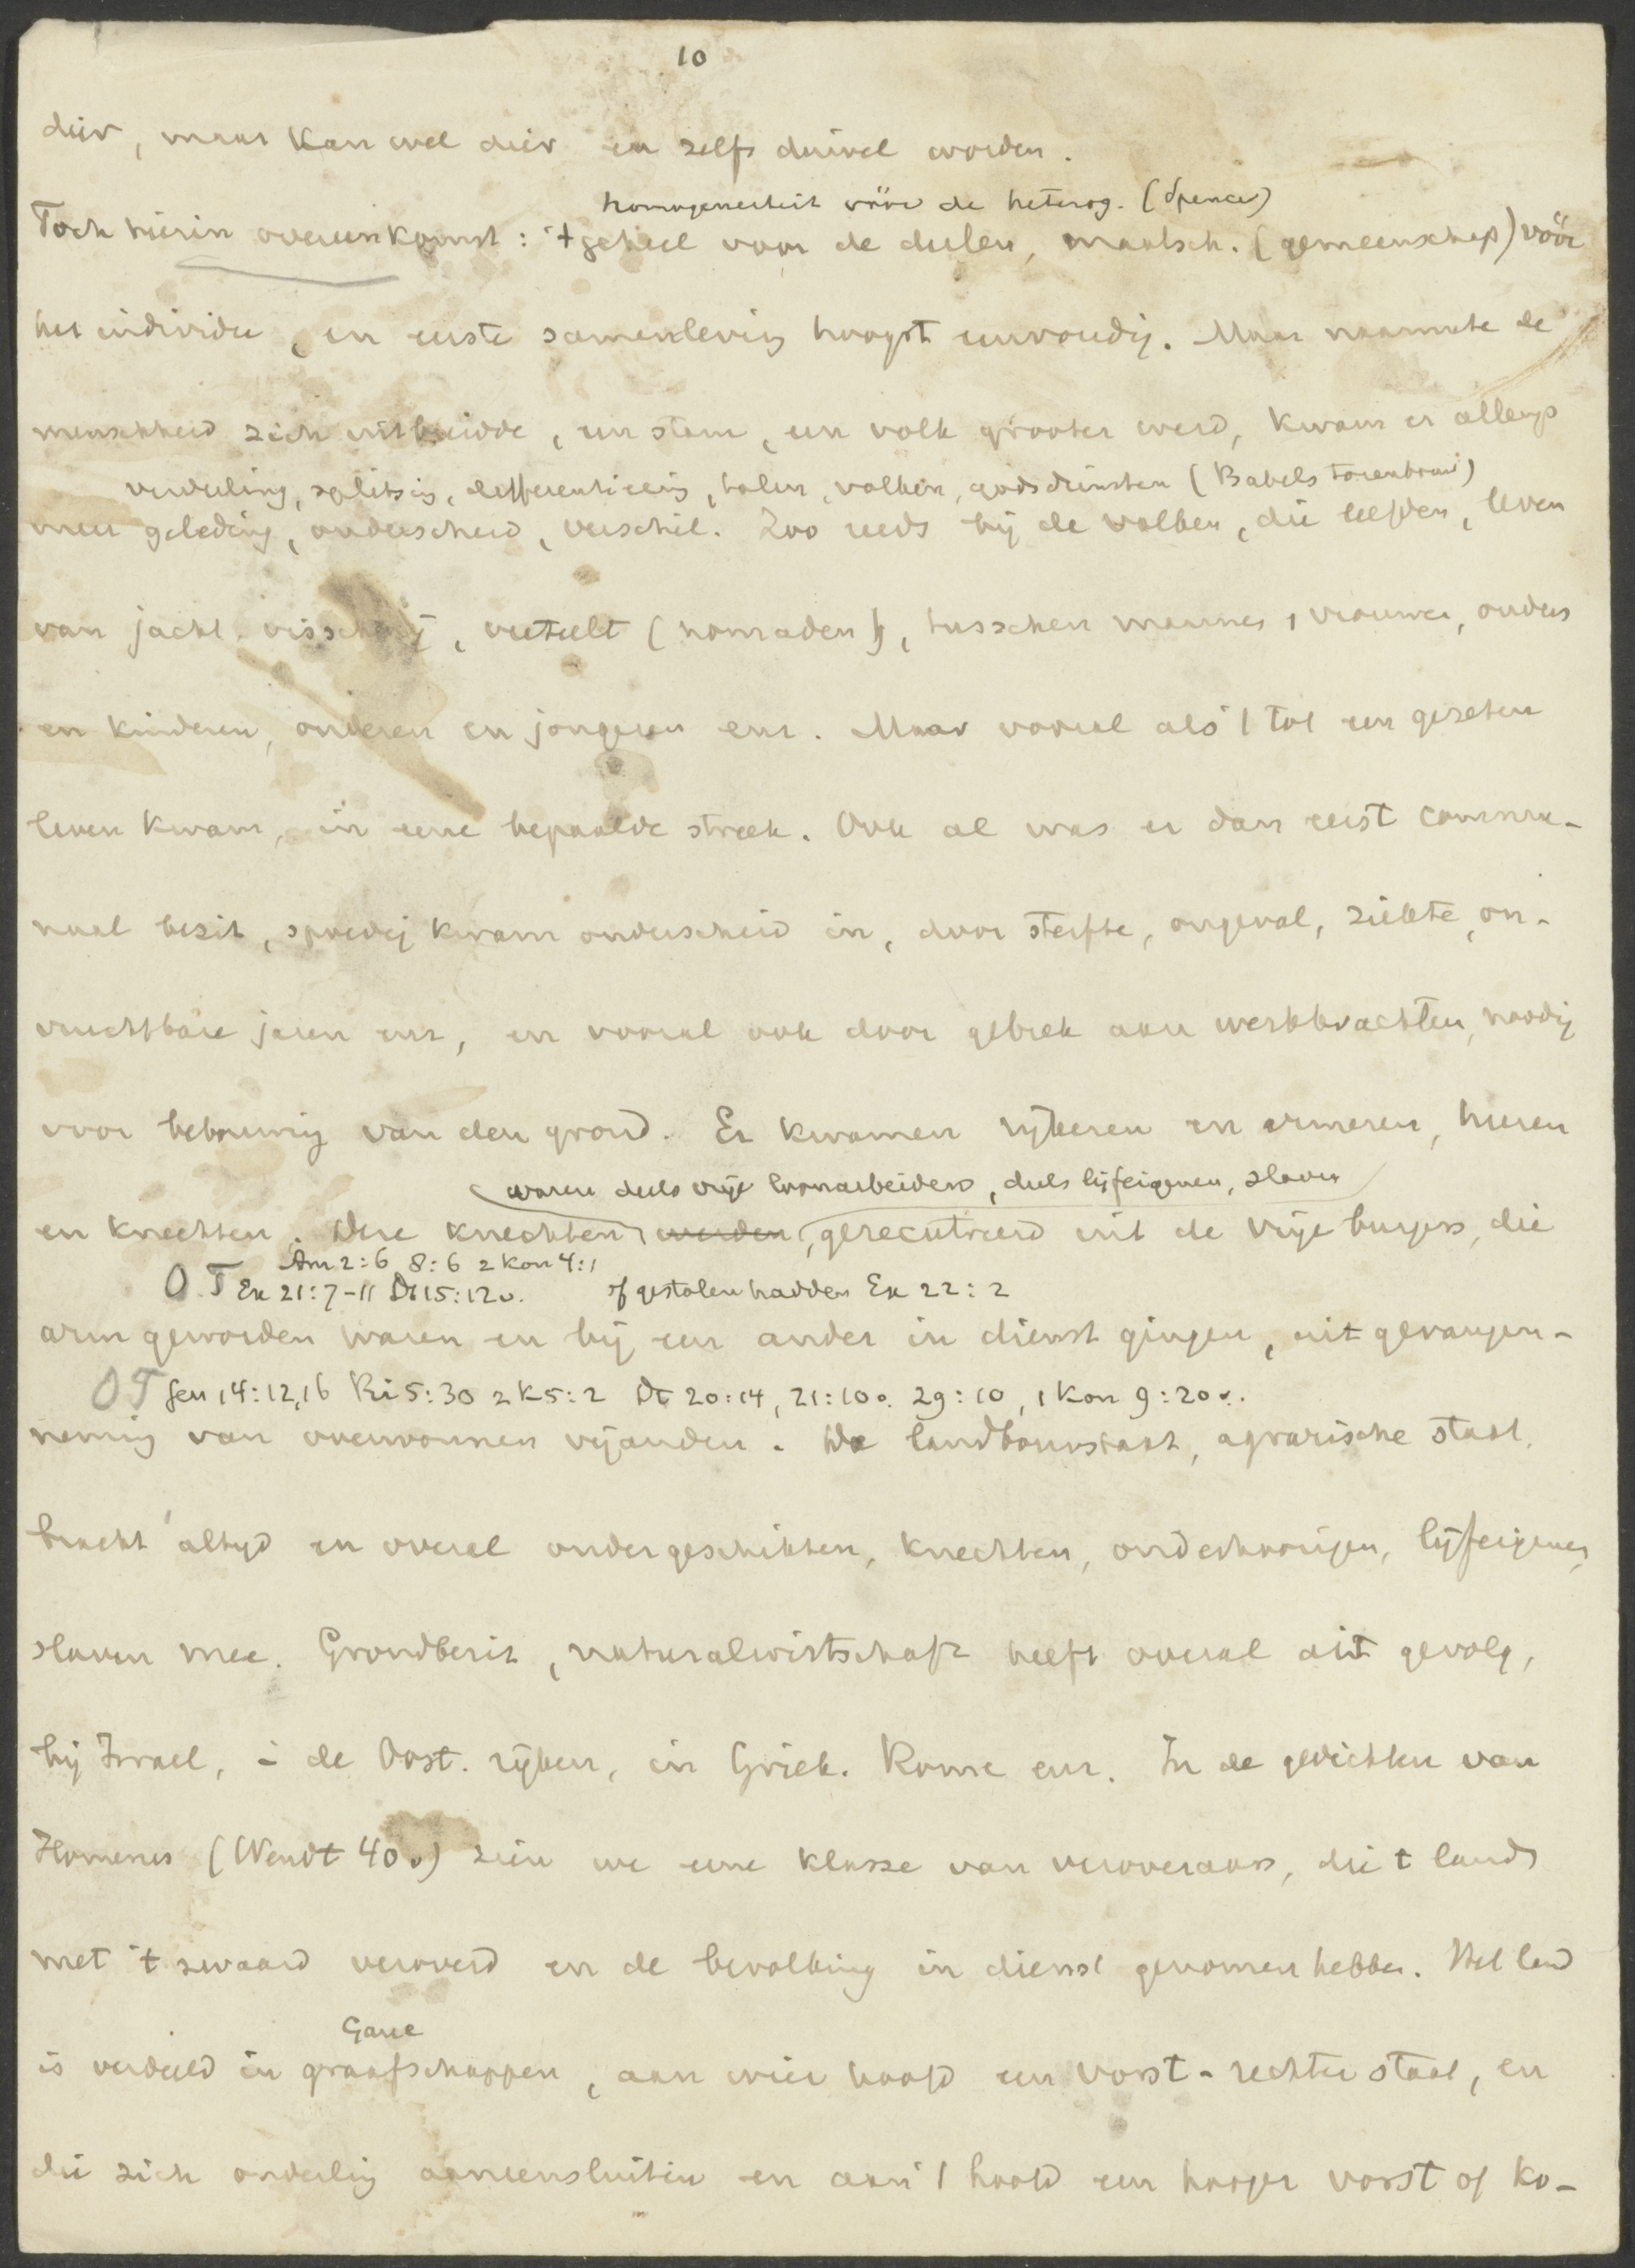 10
dier, maar kan wel dier en zelfs duivel worden.
homogeneiteit vóór de heterog. (Spencer)
Toch hierin overeenkomst: 't geheel voor de deelen, maatsch. (gemeenschap) vóór
het individu, en eerste samenleving hoogst eenvoudig. Maar naarmate de
menschheid zich uitbreidde, een stam, een volk grooter werd, kwam er allengs
verdeeling, splitsing, differentieering, talen, volken, godsdiensten (Babels torenbouw)
meer geleding, onderscheid, verschil. Zoo reeds bij de volken, die leefden, leven
van jacht, visscherij, veeteelt (nomaden), tusschen mannen, vrouwen, ouders
en kinderen, ouderen en jongeren enz. Maar vooral als 't tot een gezeten
leven kwam, in eene bepaalde streek. Ook al was er dan eerst commu-
naal bezit, spoedig kwam onderscheid in, door sterfte, ongeval, ziekte, on-
vruchtbare jaren enz, en vooral ook door gebrek aan werkkrachten, noodig
voor bebouwing van den grond. Er kwamen rijkeren en armeren, heeren
waren deels vrije loonarbeiders, deels lijfeigenen, slaven
en knechten. Deze knechten werden, gerecruteerd uit de vrije burgers, die
Am 2:6 8:6 2 Kon 4:1
O.T Ex 21:7-11 Dt 15:12v. of gestolen hadden Ex 22:2
arm geworden waren en bij een ander in dienst gingen, uit gevangen-
OT Gen 14:12,16 Ri 5:30 2 K 5:2 Dt 20:14, 21:10v. 29:10, 1 Kon 9:20v.
neming van overwonnen vijanden. De landbouwstaat, agrarische staat,
bracht altijd en overal ondergeschikten, knechten, onderhoorigen, lijfeigenen,
slaven mee. Grondbezit, naturalwirtschaft heeft overal dit gevolg,
bij Israel, in de Oost. rijken, in Griek. Rome enz. In de gedichten van
Homerus (Wendt 40v) zien we eene klasse van veroveraars, die t land
met 't zwaard veroverd en de bevolking in dienst genomen hebben. Het land
Gaue
is verdeeld in graafschappen, aan wier hoofd een vorst-rechter staat, en
die zich onderling aaneensluiten en aan 't hoofd een hooger vorst of ko-